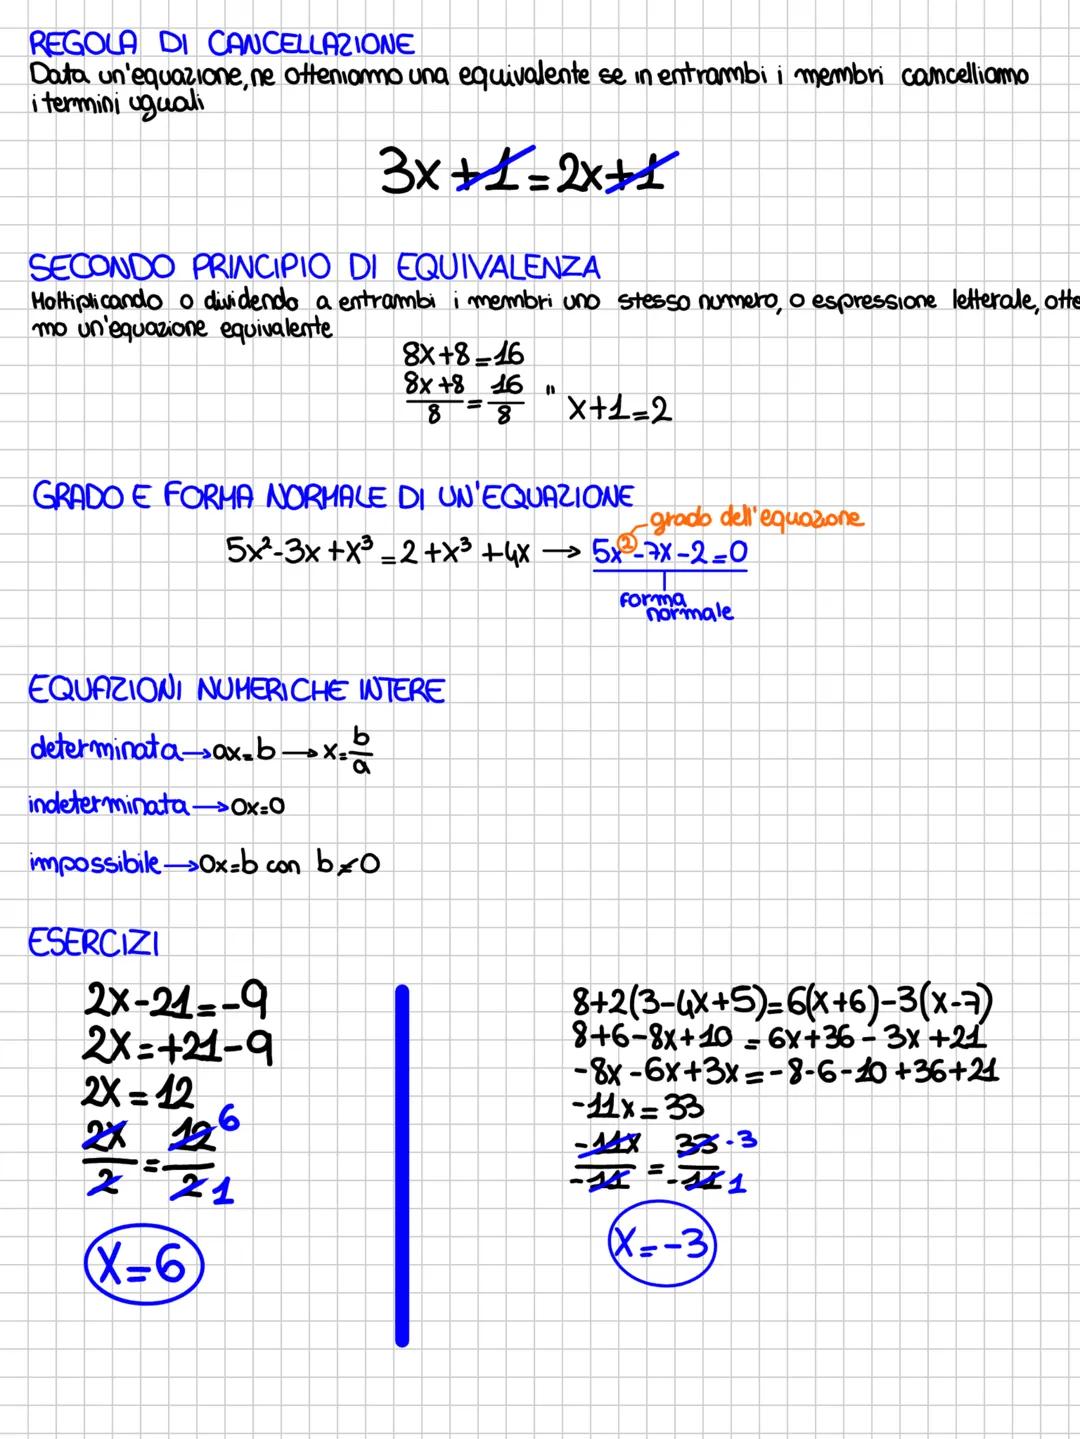 REGOLA DI CANCELLAZIONE
Data un'equazione, ne otteniamo una equivalente se in entrambi i membri cancelliamo
i termini uguali
3x +1 = 2x +1
SECONDO PRINCIPIO DI EQUIVALENZA
Moltiplicando o dividendo a entrambi i membri uno stesso numero, o espressione letterale, otte
mo un'equazione equivalente
8x+8=16
8x+8/8 = 16/8 " x+1=2
GRADO E FORMA NORMALE DI UN'EQUAZIONE
grado dell'equazione
5x²-3x+x³=2+x³+4x → 5x²-7x-2=0
forma
normale
EQUAZIONI NUMERICHE INTERE
determinata→ax=b→x=b/a
indeterminata→0x=0
impossibile→0x=b con b≠0
ESERCIZI
2x-21=-9
2x=+21-9
2x=12
2x/2 = 12/2 6 1
x=6
8+2(3-4x+5)=6(x+6)-3(x-7)
8+6-8x+10 = 6x+36-3x+21
-8x-6x+3x=-8-6-10+36+21
-11x=33
-11x/-11 = 33/-11 -3 1
x=-3